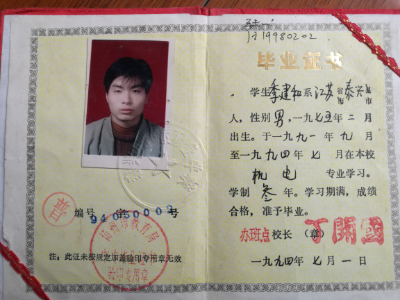 19980202
毕业证书
学生李建和系江苏省市泰兴县市
人，性别男，一九七五年二月
出生。于一九九一年九月
至一九九四年七月在本校
机电专业学习。
学制叁年。学习期满，成绩
合格，准予毕业。
办班点校长（章）丁开国
一九九四年七月一日
普
编号94050003号
注：此证未按规定加盖验印专用章无效
验印专用章